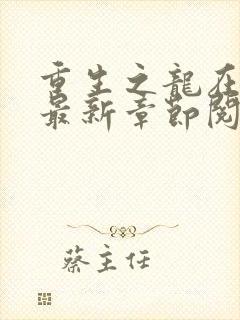 重生之龍在
最新章節閱
蔡主任